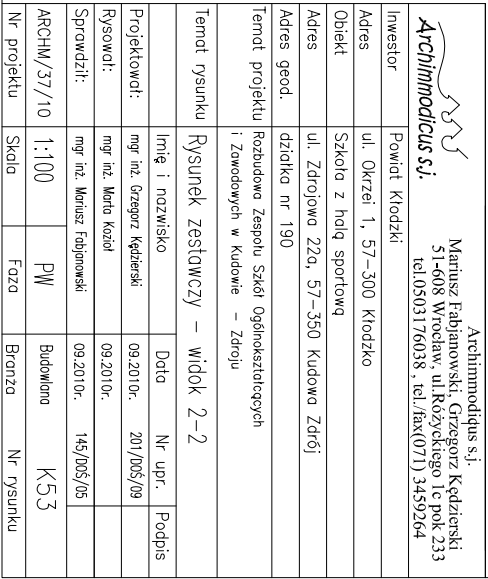 Archimmodicus s.j.
Archimmodiqus s.j.
Mariusz Fabjanowski, Grzegorz Kędzierski
51-608 Wrocław, ul.Różyckiego 1c pok 233
tel.0503176038 , tel./fax(071) 3459264
Inwestor Powiat Kłodzki
Adres ul. Okrzei 1, 57-300 Kłodzko
Obiekt Szkoła z halą sportową
Adres ul. Zdrojowa 22a, 57-350 Kudowa Zdrój
Adres geod. działka nr 190
Temat projektu Rozbudowa Zespołu Szkół Ogólnokształcących
i Zawodowych w Kudowie - Zdroju
Temat rysunku Rysunek zestawczy - widok 2-2
Imię i nazwisko Data Nr upr. Podpis
Projektował: mgr inż. Grzegorz Kędzierski 09.2010r. 201/DOŚ/09
Rysował: mgr inż. Marta Kozioł 09.2010r.
Sprawdził: mgr inż. Mariusz Fabjanowski 09.2010r. 145/DOŚ/05
ARCHM/37/10 1:100 PW Budowlana K53
Nr projektu Skala Faza Branża Nr rysunku